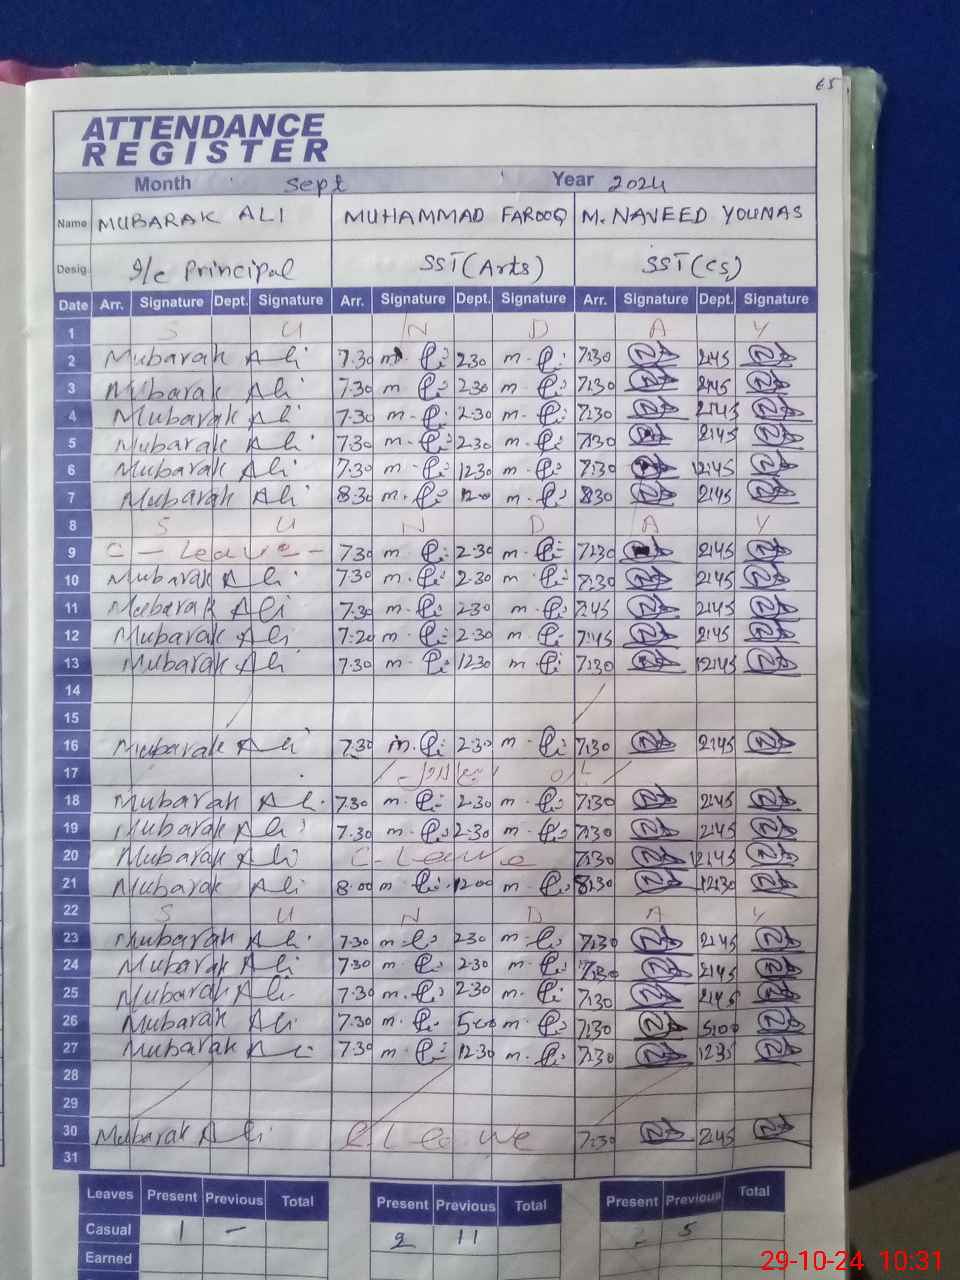 65
ATTENDANCE
REGISTER
Month Sept Year 2024
Name MUBARAK ALI MUHAMMAD FAROOQ M. NAVEED YOUNAS
Desig. I/c Principal SST (Arts) SST (CS)
Date Arr. Signature Dept. Signature Arr. Signature Dept. Signature Arr. Signature Dept. Signature
1 S U N D A Y
2 Mubarak Ali 7.30 m. 2.30 m. 7:30 2:45
3 Mubarak Ali 7.30 m. 2.30 m. 7:30 2:45
4 Mubarak Ali 7.30 m. 2.30 m. 7:30 2:45
5 Mubarak Ali 7.30 m. 2.30 m. 7:30 2:45
6 Mubarak Ali 7.30 m. 12.30 m. 7:30 12:45
7 Mubarak Ali 8.30 m. m. 8:30 2:45
8 S U N D A Y
9 C - Leave - 7.30 m. 2.30 m. 7:30 2:45
10 Mubarak Ali 7.30 m. 2.30 m. 7:30 2:45
11 Mubarak Ali 7.30 m. 2.30 m. 7:45 2:45
12 Mubarak Ali 7.20 m. 2.30 m. 7:45 2:45
13 Mubarak Ali 7.30 m. 12.30 m. 7:30 12:45
14
15
16 Mubarak Ali 7.30 m. 2.30 m. 7:30 2:45
17
18 Mubarak Ali 7.30 m. 2.30 m. 7:30 2:45
19 Mubarak Ali 7.30 m. 2.30 m. 7:30 2:45
20 Mubarak Ali C - Leave 7:30 12:45
21 Mubarak Ali 8.00 m. 12.00 m. 8:30 12:30
22 S U N D A Y
23 Mubarak Ali 7.30 m. 2.30 m. 7:30 2:45
24 Mubarak Ali 7.30 m. 2.30 m. 7:30 2:45
25 Mubarak Ali 7.30 m. 2.30 m. 7:30 2:45
26 Mubarak Ali 7.30 m. 5:00 m. 7:30 5:00
27 Mubarak Ali 7.30 m. 12.30 m. 7:30 12:35
28
29
30 Mubarak Ali C. Leave 7:30 2:45
31
Leaves Present Previous Total Present Previous Total Present Previous Total
Casual 1 - 2 11 - 5
Earned
29-10-24 10:31